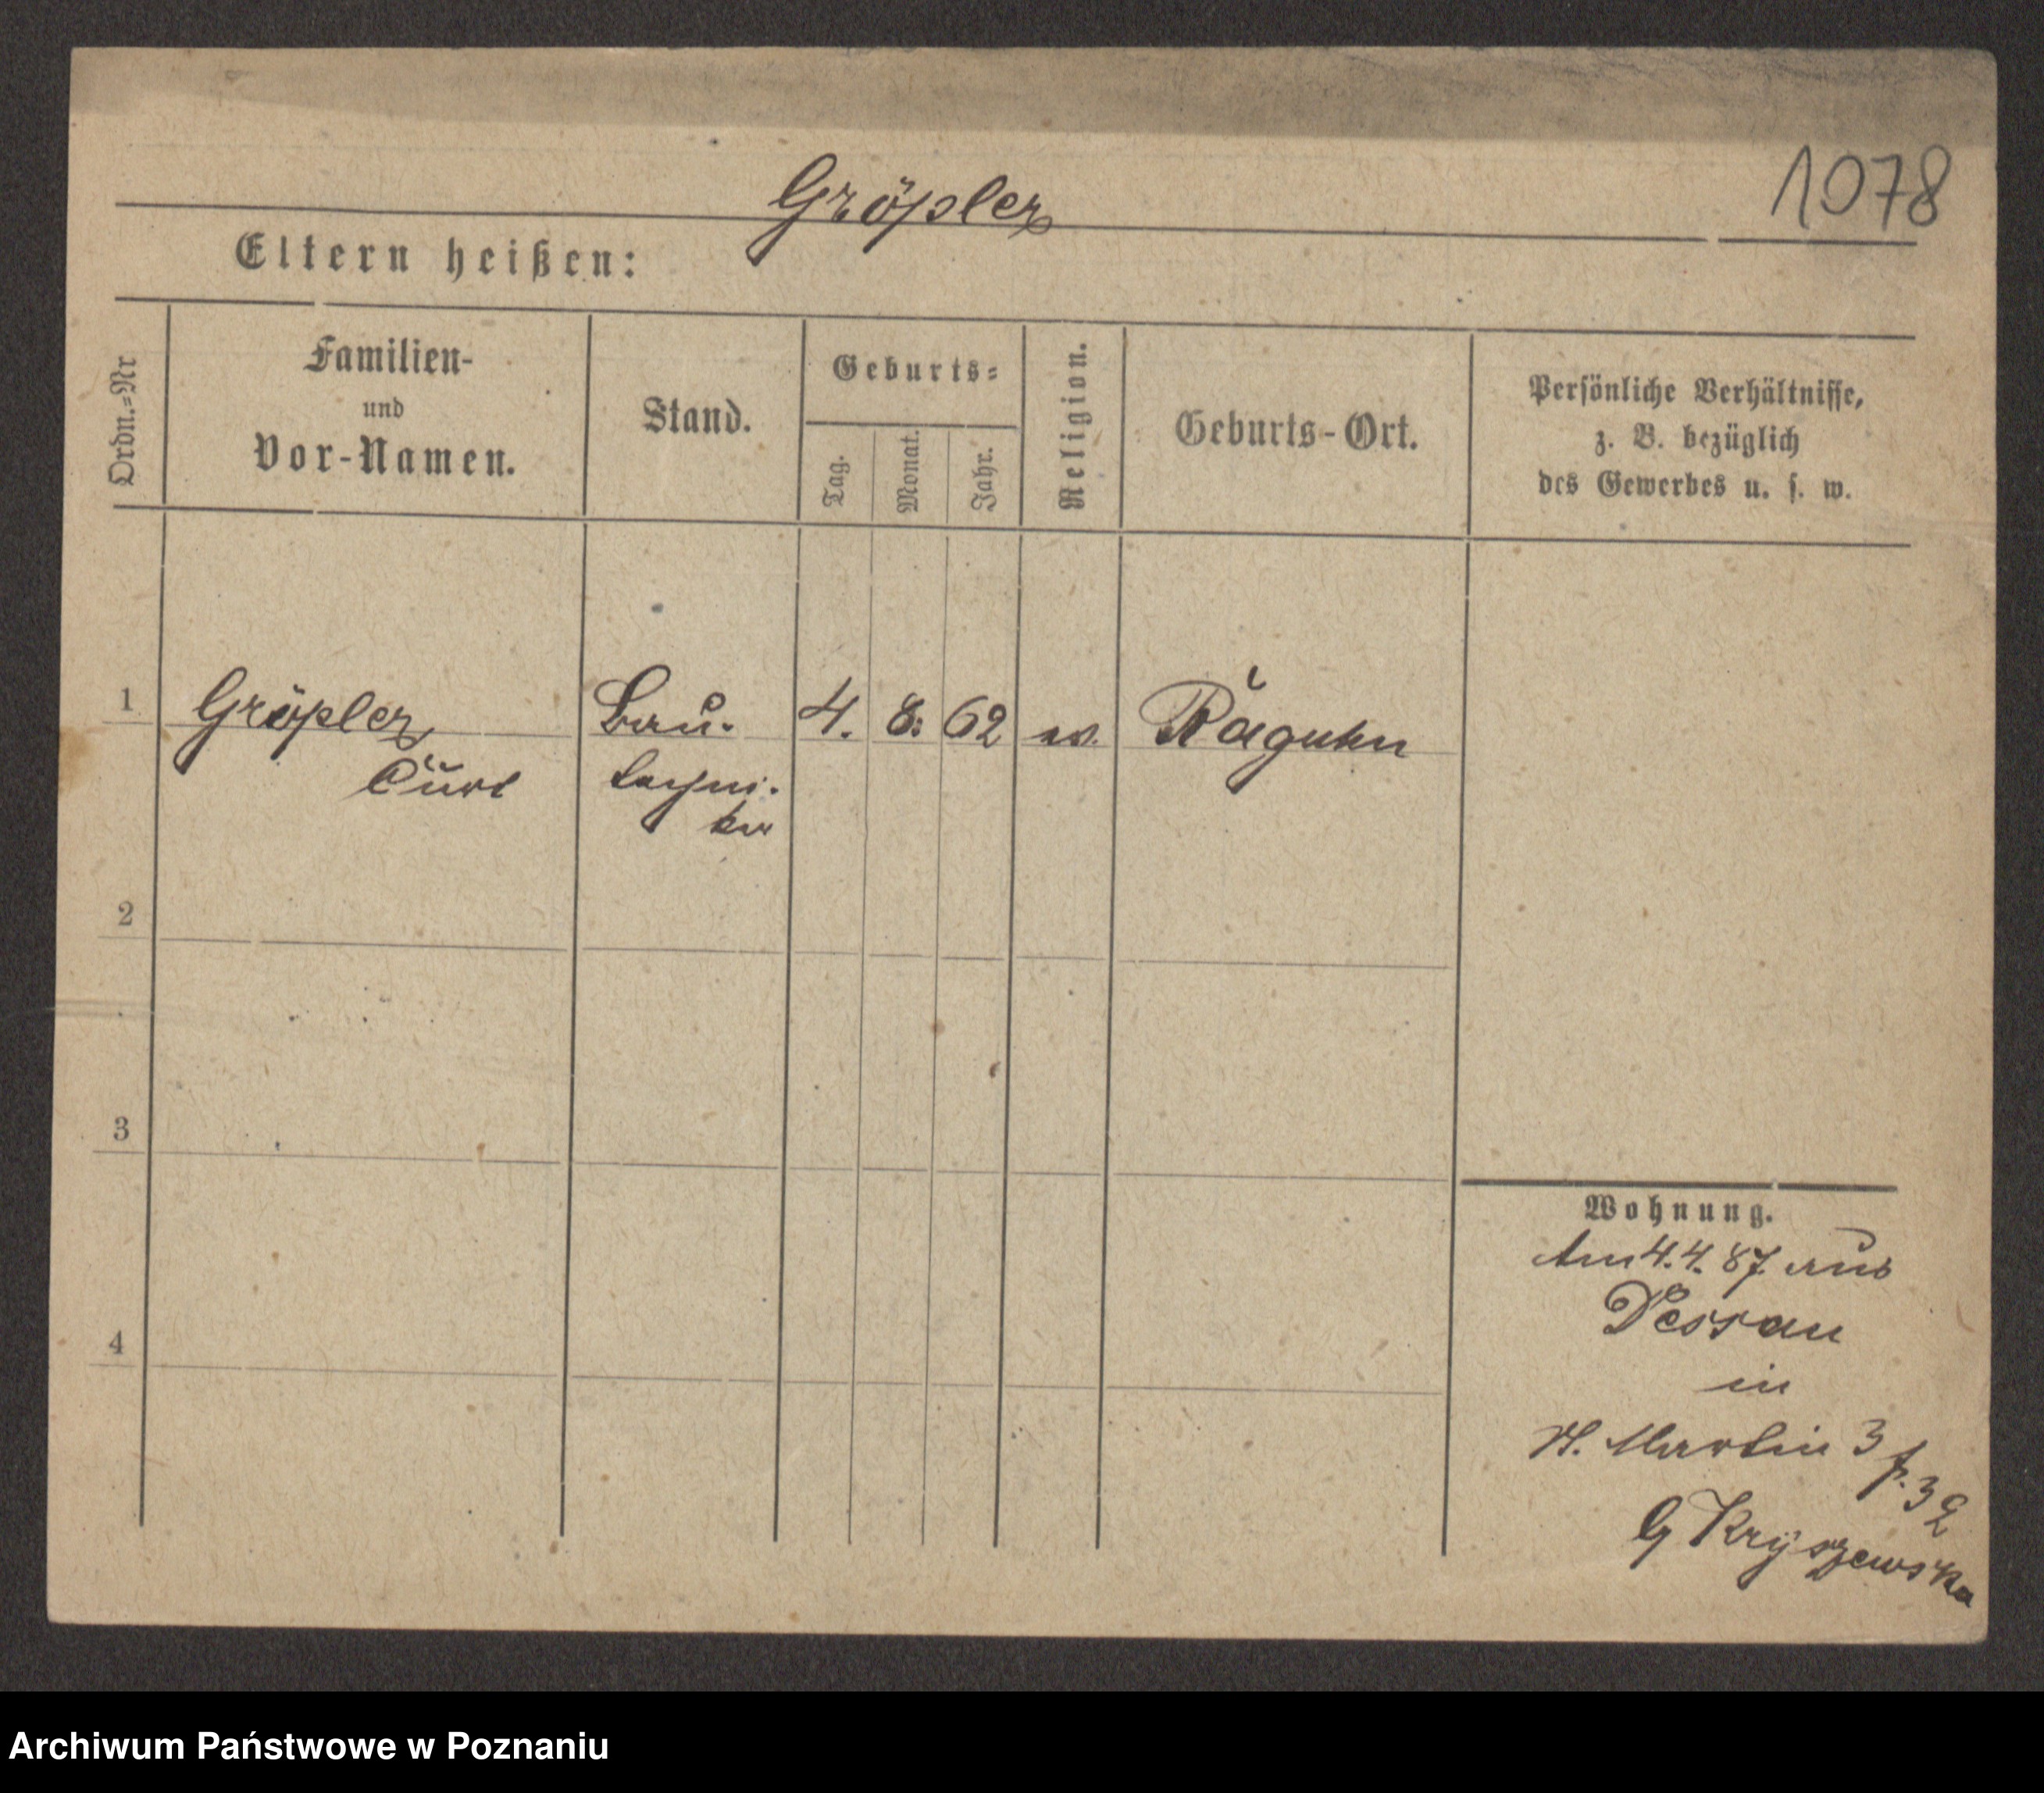 Gröpler
1078
Eltern heißen:
Ordn.=Nr
Familien-
und
Vor-Namen.
Stand.
Geburts=
Tag.
Monat.
Jahr.
Religion.
Geburts-Ort.
Persönliche Verhältnisse,
z. B. bezüglich
des Gewerbes u. s. w.
1 Gröpler Bau- 4. 8. 62 ev. Raguhn
Curt techni-
ker
2
3
4
Wohnung.
Am 4.4.87. aus
Dessau
in
St. Martin 3
p. 32
G Kryszewska
Archiwum Państwowe w Poznaniu